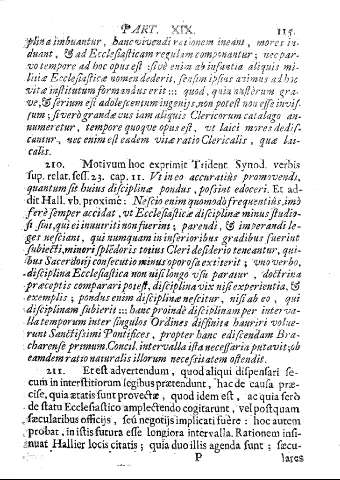 PART. XIX. 115.
plina imbuantur, hanc vivendi rationem ineant, mores in-
duant, & ad Ecclesiasticam regulam componantur; nec par-
vo tempore ad hoc opus est: sivè enim ab infantia aliquis mi-
litiæ Ecclesiasticæ nomen dederit, sensim ipsius animus ad hoc
vitæ institutum formandus erit ::: quod, quia austerum gra-
ve, & serium est adolescentum ingenijs, non potest nou esse invis-
sum; si verò grandævus iam aliquis Clericorum catalago an-
numeretur, tempore quoque opus est, ut laici mores dedis-
cantur, nec enim est eadem vitæ ratio Clericalis, quæ lai-
calis.
210. Motivum hoc exprimit Trident. Synod. verbis
sup. relat. sess. 23. cap. 11. Vt in eo accuratiùs promovendi,
quantum sit huius disciplinæ pondus, possint edoceri. Et ad-
dit Hall. vb. proximè: Nescio enim quomodo frequentiùs, imò
ferè semper accidat, vt Ecclesiasticæ disciplinæ minus studio-
si sint, qui ei innutriti non fuerint; parendi, & imperandi le-
ges nesciant, qui numquam in inferioribus gradibus fuerint
subiecti, minori splēdoris totius Cleri desiderio teneantur, qui-
bus Sacerdotij consecutio minus operosa extiterit; vno verbo,
disciplina Ecclesiastica non nisi longo vsu paratur, doctrina
præceptis comparari potest, disciplina vix nisi experientia, &
exemplis; pondus enim disciplinæ nescitur, nisi ab eo, qui
disciplinam subierit ::: hanc proinde disciplinam per inter va-
lla temporum inter singulos Ordines diffinita hauriri volue-
runt Sanctissimi Pontifices, propter hanc ediscendam Bra-
charense primum. Concil. intervalla ista necessaria putavit; ob
eamdem ratio naturalis illorum necessitatem ostendit.
211. Et est advertendum, quod aliqui dispensari se-
cum in interstitiorum legibus prætendunt, hac de causa præ-
cise, quia ætatis sunt provectæ, quod idem est, ac quia serò
de statu Ecclesiastico amplectendo cogitarunt, vel postquam
sæcularibus officijs, seù negotijs implicati fuère: hoc autem
probat, in istis futura esse longiora intervalla. Rationem insi-
nuat Hallier locis citatis; quia duo illis agenda sunt; sæcu-
P lares